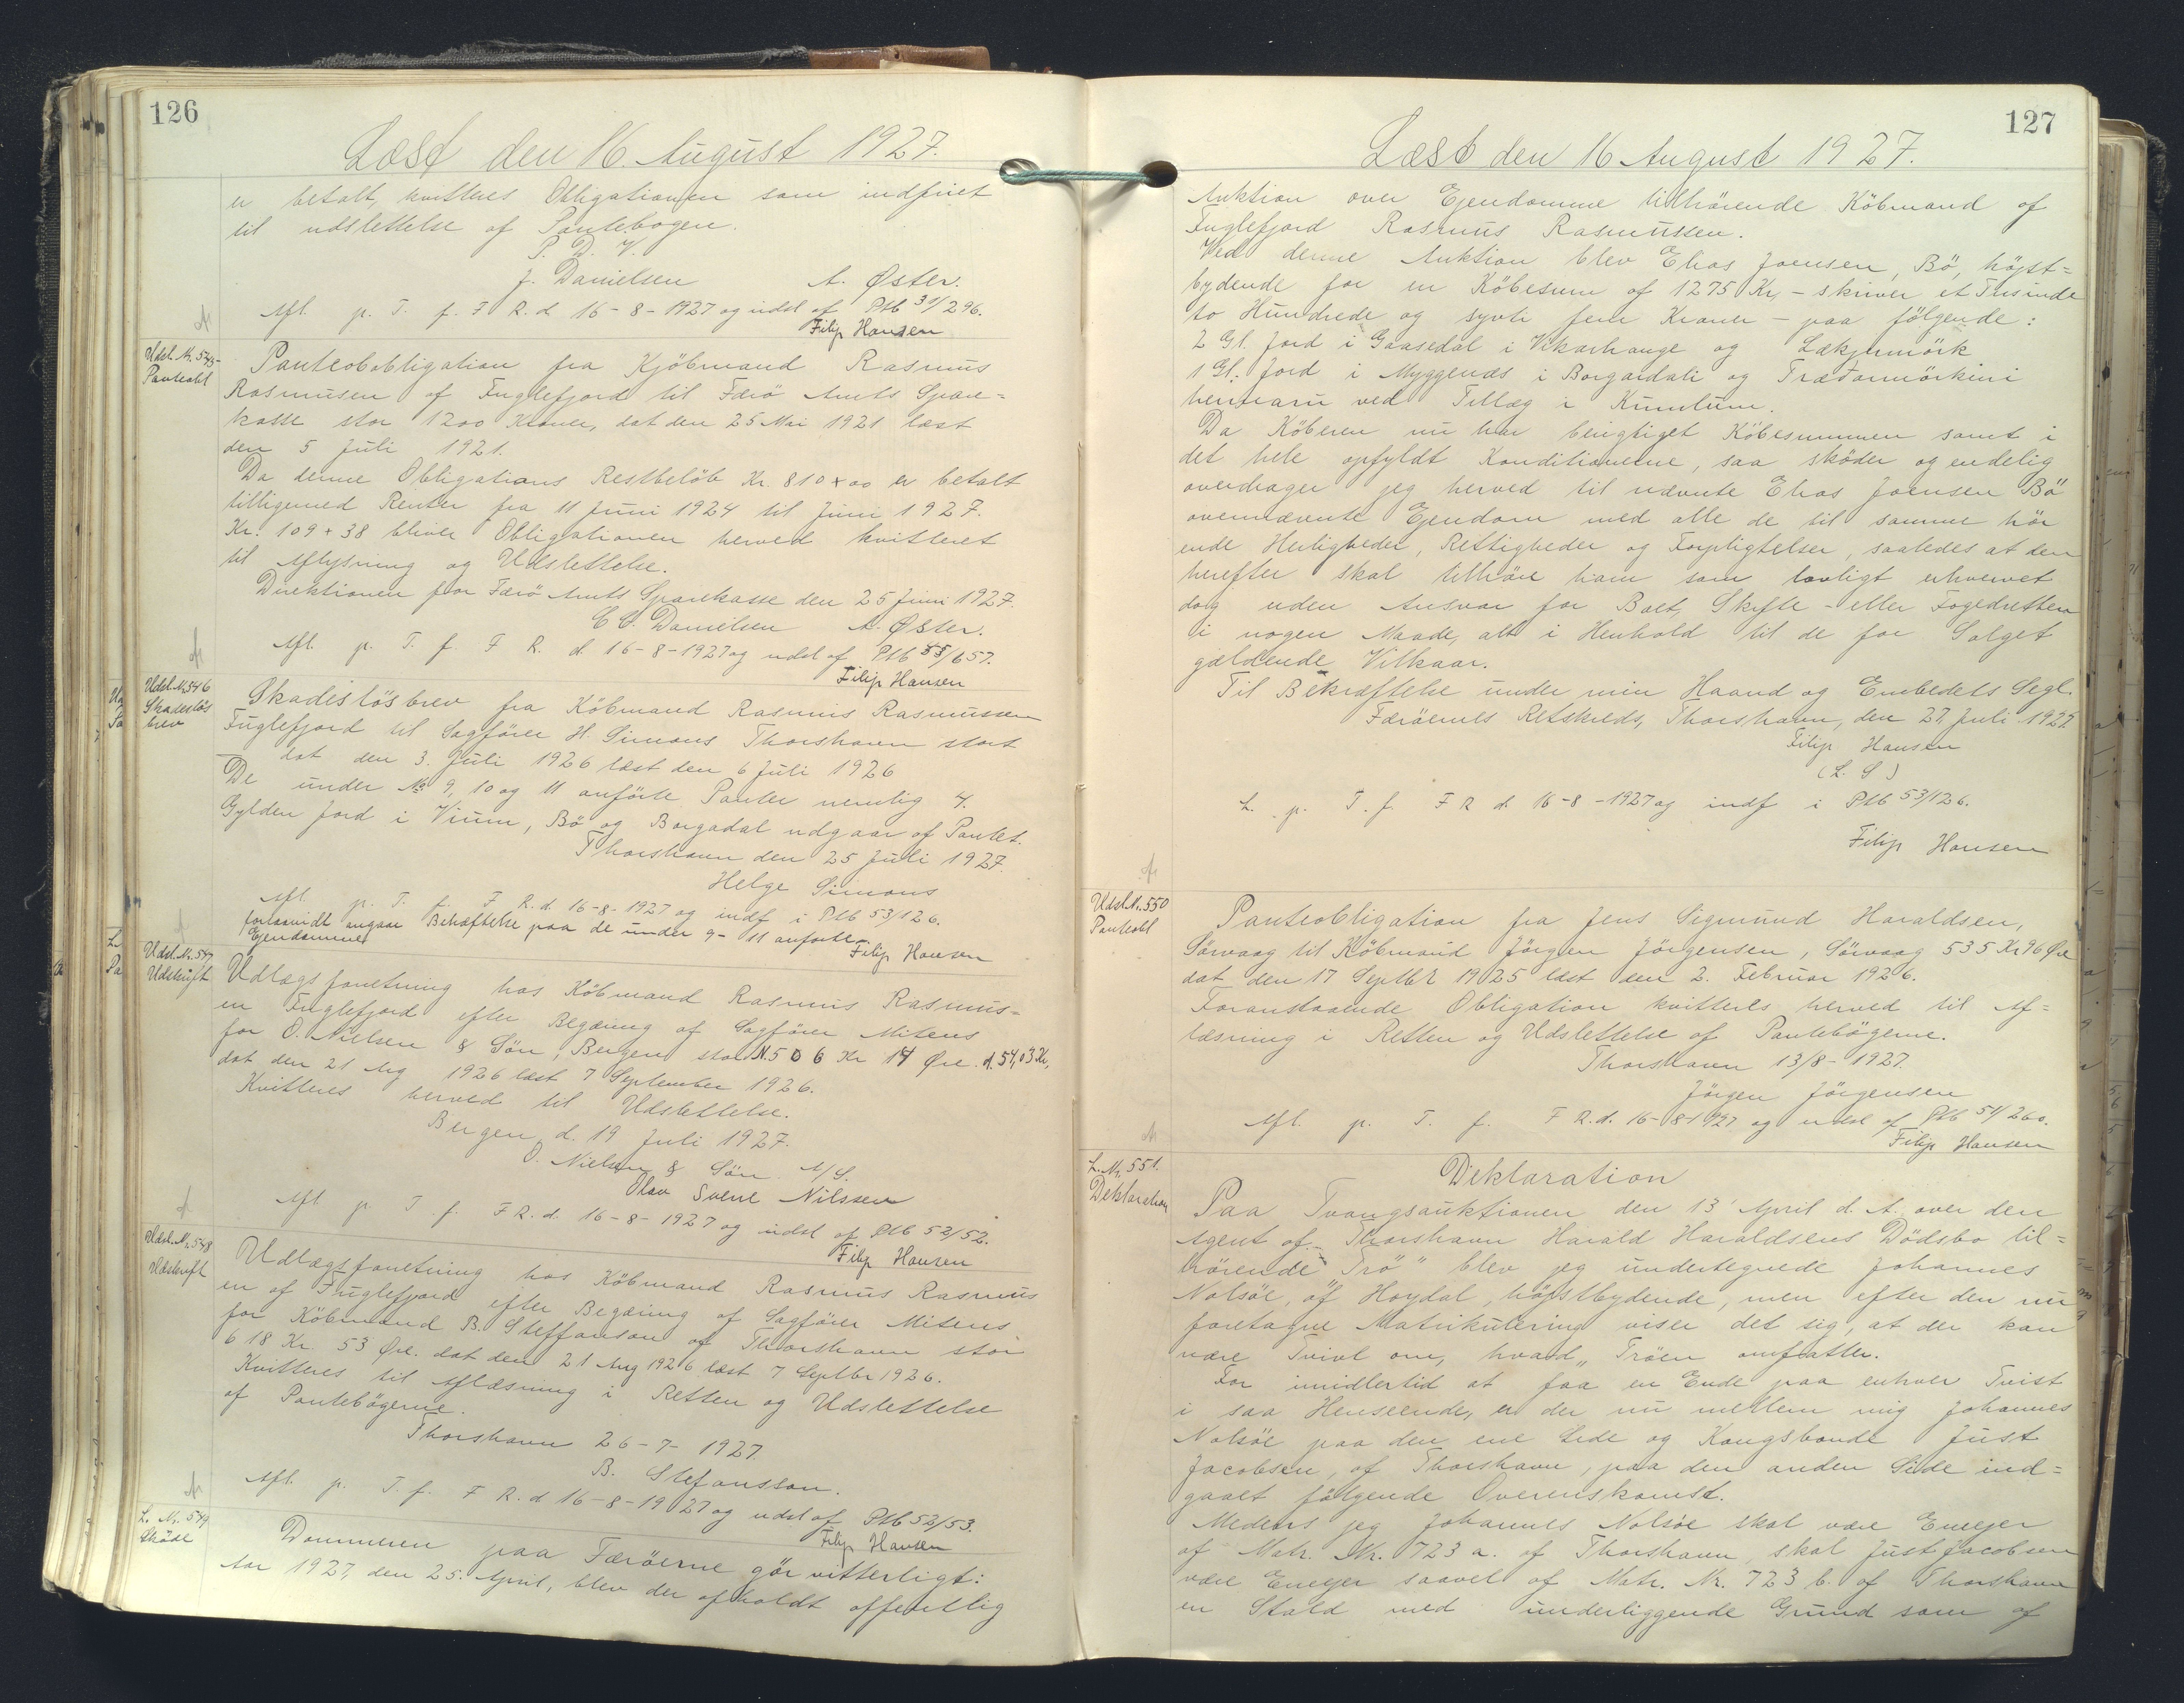 126
Læst den 16. August 1927.
er betalt, kvitteres Obligationen som indfriet
til udslettelse af Pantebogen.
P. D. V.
J. Danielsen A. Øster.
Afl. p. T. f. F R. d. 16-8-1927 og udsl af Ptb 31/296.
Filip Hansen
Udsl. Nr. 545
Panteobl
Panteobobligation fra Kjöbmand Rasmus
Rasmusen af Fuglefjord til Færö Amts Spare=
kasse stor 1200 Kroner, dat den 25 Mai 1921 læst
den 5 Juli 1921.
Da denne Obligations Restbelöb Kr. 810+00 er betalt
tilligemed Renter fra 11 Juni 1924 til Juni 1927.
Kr. 109+38 bliver Obligationen herved kvitteret
til Aflysning og Udslettelse.
Direktionen for Færö Amts Sparekasse den 25 Juni 1927.
C C. Danielsen A. Øster.
Afl. p. T. f. F R. d. 16-8-1927 og udsl af Ptb 55/657.
Filip Hansen
Udsl. Nr 546
Skadeslös
brev
Skadeslösbrev fra Köbmand Rasmus Rasmussen
Fuglefjord til Sagförer H. Simons Thorshavn stort
dat den 3. Juli 1926 læst den 6 Juli 1926
De under No 9, 10 og 11 anförte Panter nemlig 4.
Gylden Jord i Vium, Bö og Borgadal udgaar af Pantet.
Thorshavn den 25 Juli 1927.
Helge Simons
Afl. p. T. f. F R. d. 16-8-1927 og indf i Ptb 53/126.
forsaavidt angaar Behæftelse paa de under 9-11 anførte
Ejendomme
Filip Hansen
Udsl. Nr. 547
Udskrift
Udlægsforretning hos Köbmand Rasmus Rasmus=
en Fuglefjord efter Begæring af Sagförer Mitens
for O. Nielsen & Sön, Bergen stor N. 506 Kr 14 Øre. d. 54,03 Kr,
dat den 21 Aug 1926 læst 7 September 1926.
Kvitteres herved til Udslettelse.
Bergen, d. 19 Juli 1927.
O. Nielsen & Sön A/S.
Olav Svere Nilssen
Afl p. T. f. F R. d. 16-8-1927 og udsl af Ptb 52/52.
Filip Hansen
Udsl. Nr. 548
Udskrift
Udlægsforretning hos Köbmand Rasmus Rasmus
en af Fuglefjord efter Begæring af Sagförer Mitens
for Köbmand B. Steffanson af Thorshavn stor
618 Kr. 53 Øre. dat den 21 Aug 1926 læst 7 Septbr 1926.
Kvitteres til Aflæsning i Retten og Udslettelse
af Pantebögerne.
Thorshavn 26-7-1927.
B. Stefansson.
Afl. p. T. f. F R. d. 16-8-1927 og udsl af Ptb 52/53.
Filip Hansen
L. Nr. 549
Sköde
Dommeren paa Færöerne gör vitterligt:
Aar 1927, den 25. April, blev der afholdt offentlig
127
Læst den 16 August 1927.
Auktion over Ejendomme tilhörende Köbmand af
Fuglefjord Rasmus Rasmussen.
Ved denne Auktion blev Elias Joensen, Bö, höjst=
bydende for en Köbesum af 1275 Kr, – skriver et Tusinde
to Hundrede og syvti fem Kroner – paa fölgende:
2 Gl. Jord i Gaasedal i Vikarhauge og Lækjumörk
1 Gl. Jord i Myggenæs i Borgardali og Træðarmörkini
ved Tillæg i
Da Köberen nu har berigtiget Köbesummen samt i
det hele opfyldt Konditionerne, saa sköder og endelig
overdrager jeg herved til nævnte Elias Joensen Bö
ovennævnte Ejendom med alle de til samme hör
ende Herligheder, Rettigheder og Forpligtelser, saaledes at den
herefter skal tilhöre ham som lovligt erhvervet
dog uden Ansvar for Boet, Skifte- eller Fogedretten
i nogen Maade, alt i Henhold til de for Salget
gældende Vilkaar.
Til Bekræftelse under min Haand og Embedets Segl.
Færöernes Retskreds, Thorshavn, den 27, Juli 1927.
Filip Hansen
(L. S)
L. p. T. f. F R d. 16-8-1927 og indf i Ptb 53/126.
Filip Hansen
Udsl. Nr. 550
Panteobl
Panteobligation fra Jens Sigmund Haraldsen,
Sörvaag til Köbmand Jörgen Jörgensen, Sörvaag 535 Kr 96 Øre
dat den 17 Septbr 1925 læst den 2. Februar 1926.
Foranstaaende Obligation kvitteres herved til Af=
læsning i Retten og Udslettelse af Pantebögerne.
Thorshavn 13/8-1927.
Jörgen Jörgensen
Afl. p. T. f. F R. d. 16-8-1927 og udsl af Ptb 54/260.
Filip Hansen
L. Nr. 551.
Deklaration
Deklaration
Paa Tvangsauktionen den 13' April d. A. over den
Agent af Thorshavn Harald Haraldsens Dödsbo til=
hörende „Trö" blev jeg undertegnede Johannes
Nolsöe, af Hoydal, höjstbydende, men efter den nu
foretagne Matrikulering viser det sig, at der kan
være Tvivl om, hvad „Tröen omfatter.
For imidlertid at faa en Ende paa enhver Tvist
i saa Henseende, er der nu mellem mig Johannes
Nolsöe paa den ene Side og Kongsbonde Just
Jacobsen, af Thorshavn, paa den anden Side ind=
gaaet fölgende Overenskomst.
Medens jeg Johannes Nolsöe skal være Eneejer
af Matr. Nr. 723 a. af Thorshavn, skal Just Jacobsen
være Eneejer saavel af Matr. Nr. 723 b. af Thorshavn
en Stald med underliggende Grund som af